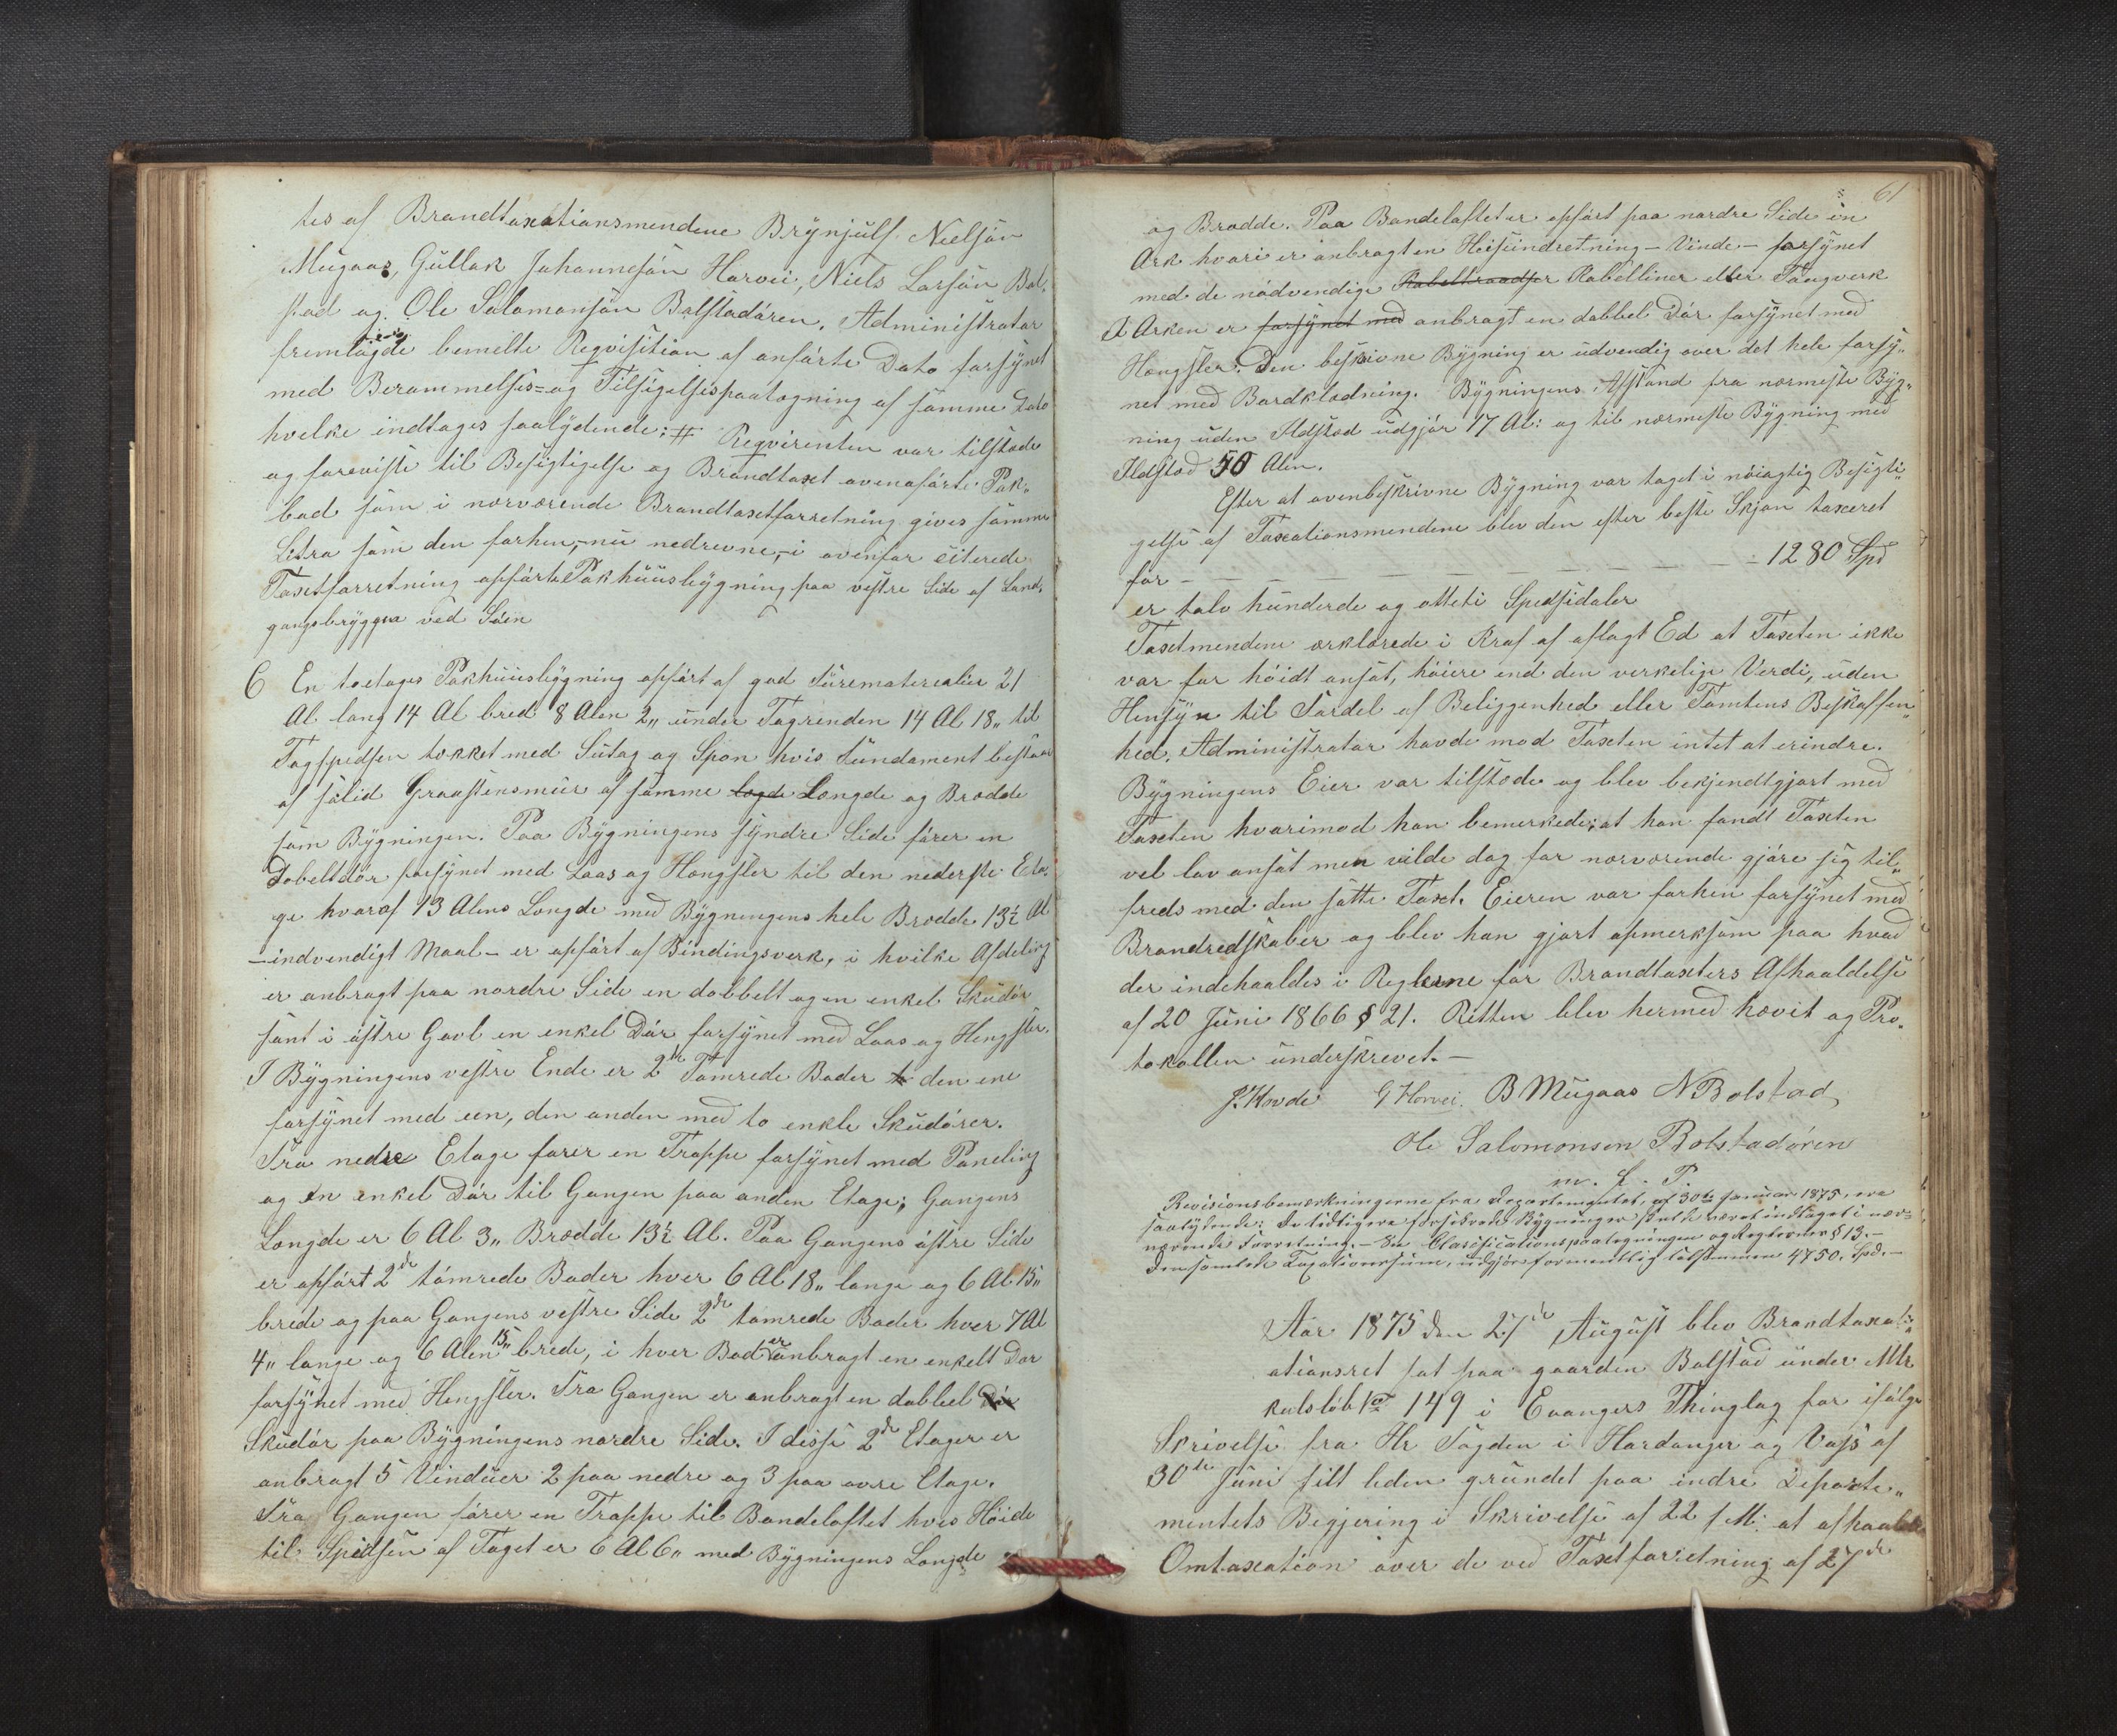 tes af Brandtaxationsmendene Brynjulf Nielsøn
Mugaas, Gullak Johannesøn Horvei, Niels Larsøn Bol„
stad og Ole Salamonsøn Bolstadøren. Administrator
fremlagde bemelte Reqvisition af anførte Dato forsynet
med Berammelses= og Tilsigelsespaategning af samme Dato
hvelke indtages saalydende: # Reqvirenten var tilstede
og foreviste til Besigtigelse og Brandtaxt ovenaførte Pak„
bod som i nærværende Brandtaxtforretning gives samme
Litra som den forhen,-nu nedrevne,-i ovenfor citerede
Taxtforretning opførte Pakhuusbygning paa vestre Side af Land„
gangsbryggen ved Søen
C En toetages Pakhuusbygning opført af god Furematerialier 21
Al lang 14 Al bred 8 Alen 2„ under Tagrenden 14 Al 18„ til
Tagspedsen tækket med Sutag og Spon hvis Fundament bestaar
af solid Graastensmur af samme lagde Længde og Brædde
som Bygningen. Paa Bygningens syndre Side fører en
Dobeltdør forsynet med Laas og Hængsler til den nederste Eta„
ge hvoraf 13 Alens Længde med Bygningens hele Brædde 13½ Al
-indvendigt Maal- er opført af Bindingsverk, i hvilke Afdeling
er anbragt paa nordre Side en dobbelt og en enkel Skudør
samt i østre Gavl en enkel Dør forsynet med Laas og Hengsler.
I Bygningens vestre Ende er 2de Tømrede Boder den ene
forsynet med een, den anden med to enkle Skudører.
Fra nedre Etage fører en Trappe forsynet med Paneling
og en enkel Dør til Gangen paa anden Etage; Gangens
Længde er 6 Al 3„ Brædde 13½ Al. Paa Gangens østre Side
er opført 2de tømrede Boder hver 6 Al 18„ lange og 6 Al 15„
brede og paa Gangens vestre Side 2de tømrede Boder hver 7 Al
4„ lange og 6 Alen 15„ brede, i hver Bod er anbragt en enkelt Dør
forsynet med Hengsler. Fra Gangen er anbragt en dobbel Dør
Skudør paa Bygningens nordre Side. I disse 2de Etager er
anbragt 5 Vinduer 2 paa nedre og 3 paa øvre Etage.
Fra Gangen fører en Trappe til Bandeloftet hvis Høide
til Spedsen af Taget er 6 Al 6„ med Bygningens Længde
61
og Brædde. Paa Bandeloftet er opført paa nordre Side en
Ark hvori er anbragt en Heiseindretning - Vinde - forsynet
med de nødvendige Kabeltraadser Kabelliner eller Tougverk
I Arken er forsynet med anbragt en dobbel Dør forsynet med
Hængsler. Den beskrivne Bygning er udvendig over det hele forsy„
net med Bordklædning. Bygningens Afstand fra nærmeste Byg„
ning uden Ildsted udgjør 17 Al: og til nærmeste Bygning med
Ildsted 50 Alen.
Efter at ovenbeskrivne Bygning var taget i nøiagtig Besigti„
gelse af Taxationsmendene blev den efter beste Skjøn taxeret
for - - - - - - - - - 1280 Spd
er tolv hunderde og otteti Spedsidaler
Taxtmendene erklærede i Kraf af aflagt Ed at Taxten ikke
var for høidt ansat, høiere end den verkelige Verdi, uden
Hensyn til Fordel af Beliggenhed eller Tomtens Beskaffen„
hed. Administrator havde mod Taxten intet at erindre.
Bygningens Eier var tilstede og blev bekjendtgjort med
Taxten hvorimod han bemerkede; at han fandt Taxten
vel lav ansat men vilde dog for nærværende gjøre sig til„
freds med den satte Taxt. Eieren var forhen forsynet med
Brandredskaber og blev han gjort opmerksom paa hvad
der indehaaldes i Reglerne for Brandtaxters Afhaaldelse
af 20 Juni 1866 § 21. Retten blev hermed hævet og Pro„
tokollen underskrevet. -
J. Hovde G Horvei. B Mugaas N Bolstad
Ole Salomonsen Bolstadøren
m. L. P.
Revisionsbemærkningerne fra Departementet, af 30te Januar 1875, ere
saalydende: De tidligere forsikrede Bygninger skulde været indtaget i nær=
værende Forretning. - Se Clasificationspaategningen og Reglernes § 13. -
Den samlede Taxationssum, udgjør formentlig tilsammen 4750. Spd. -
Aar 1875 den 27de August blev Brandtaxati„
ationsret sat paa gaarden Bolstad under Mtr
kulsløb No 149 i Evangers Thinglag for ifølge
Skrivelse fra Hr Fogden i Hardanger og Voss af
30te Juni sitl leden grundet paa indre Departe„
mentets Begjering i Skrivelse af 22 s M: at afhaalde
Omtaxation over de ved Taxtforretning af 27de